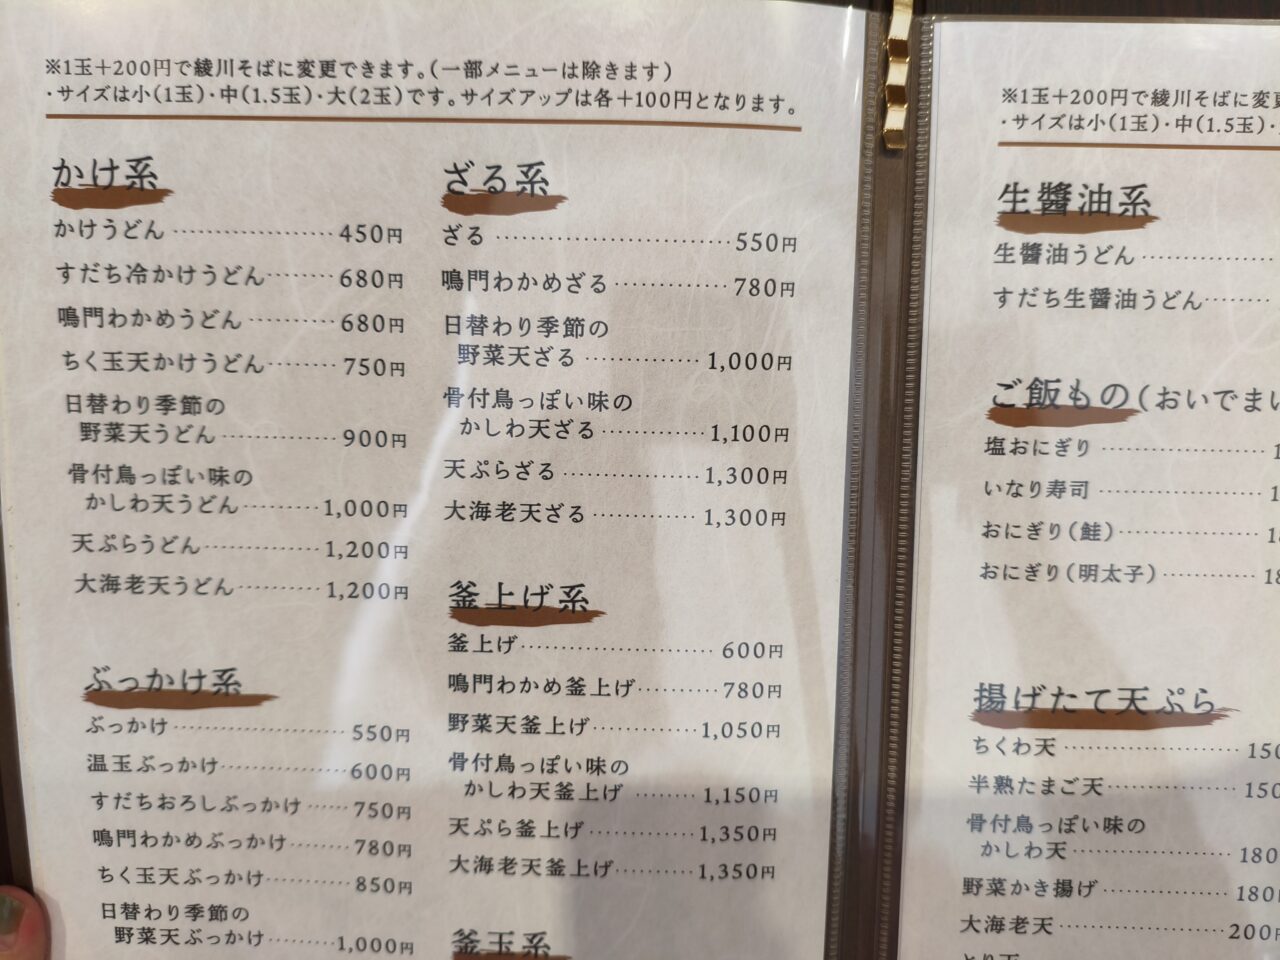 ※1玉＋200円で綾川そばに変更できます。(一部メニューは除きます)
・サイズは小(1玉)・中(1.5玉)・大(2玉)です。サイズアップは各＋100円となります。
かけ系
かけうどん 450円
すだち冷かけうどん 680円
鳴門わかめうどん 680円
ちく玉天かけうどん 750円
日替わり季節の
野菜天うどん 900円
骨付鳥っぽい味の
かしわ天うどん 1,000円
天ぷらうどん 1,200円
大海老天うどん 1,200円
ぶっかけ系
ぶっかけ 550円
温玉ぶっかけ 600円
すだちおろしぶっかけ 750円
鳴門わかめぶっかけ 780円
ちく玉天ぶっかけ 850円
日替わり季節の
野菜天ぶっかけ 1,000円
ざる系
ざる 550円
鳴門わかめざる 780円
日替わり季節の
野菜天ざる 1,000円
骨付鳥っぽい味の
かしわ天ざる 1,100円
天ぷらざる 1,300円
大海老天ざる 1,300円
釜上げ系
釜上げ 600円
鳴門わかめ釜上げ 780円
野菜天釜上げ 1,050円
骨付鳥っぽい味の
かしわ天釜上げ 1,150円
天ぷら釜上げ 1,350円
大海老天釜上げ 1,350円
釜玉系
※1玉＋200円で綾川そばに変
・サイズは小(1玉)・中(1.5玉)・
生醤油系
生醤油うどん
すだち生醤油うどん
ご飯もの(おいでまい
塩おにぎり
いなり寿司
おにぎり(鮭)
おにぎり(明太子)
揚げたて天ぷら
ちくわ天 150
半熟たまご天 150
骨付鳥っぽい味の
かしわ天 180
野菜かき揚げ 180
大海老天 200円